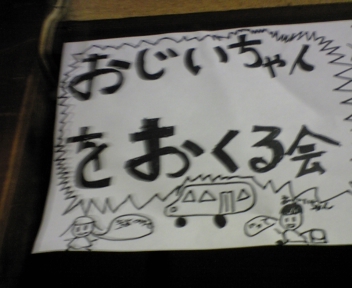 おじいちゃん
をおくる会